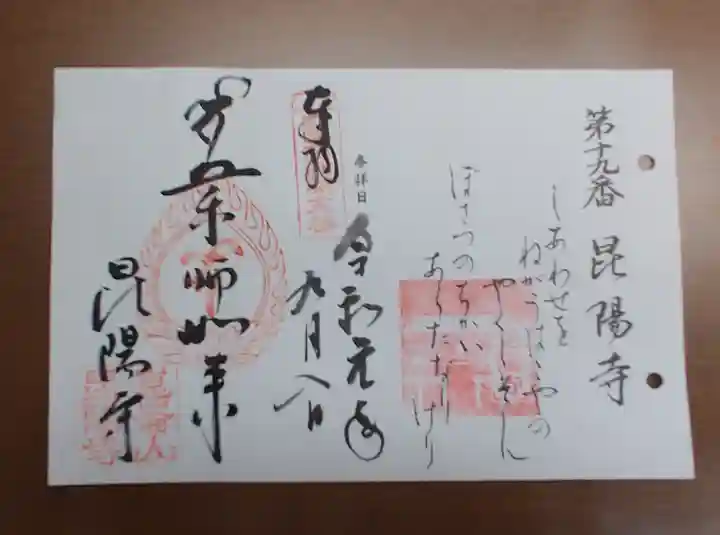 第十九番 昆陽寺
しあわせを
ねがうはいやの
やくしそん
ぼさつのちかい
あらたなりけり
参拝日
令和元年
九月八日
奉拝
薬師如来
昆陽寺